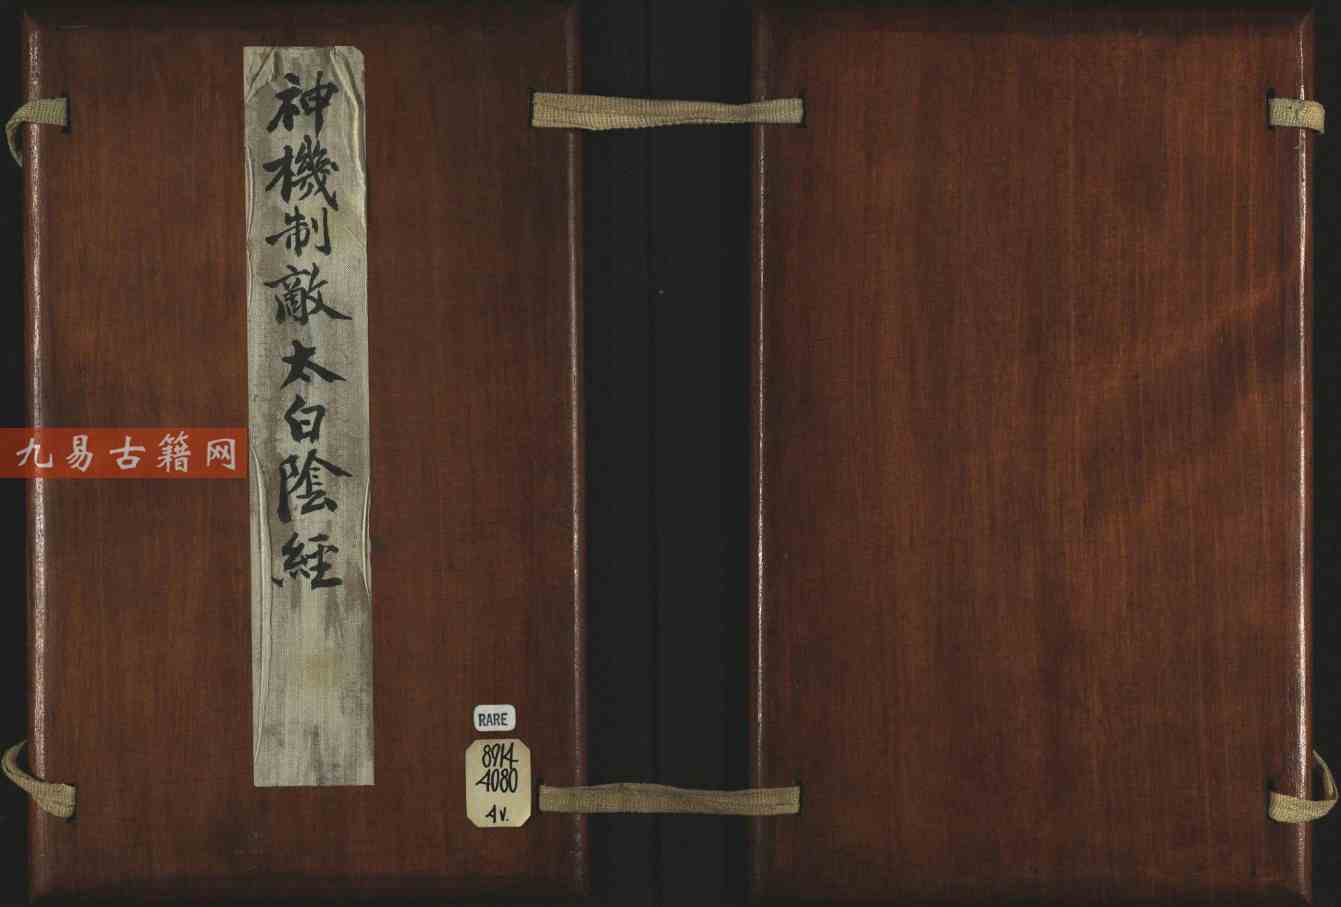 神機制敵太白陰經
九易古籍网
RARE
8914
4080
4v.